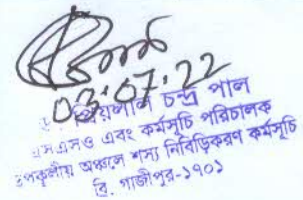 03.07.22
প্রিয়লাল চন্দ্র পাল
এসএসও এবং কর্মসূচি পরিচালক
উপকূলীয় অঞ্চলে শস্য নিবিড়িকরণ কর্মসূচি
ব্রি, গাজীপুর-১৭০১